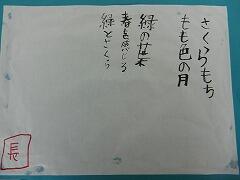 さくらもち
もも色の月
緑の葉
春を感じる
緑とさくら
長